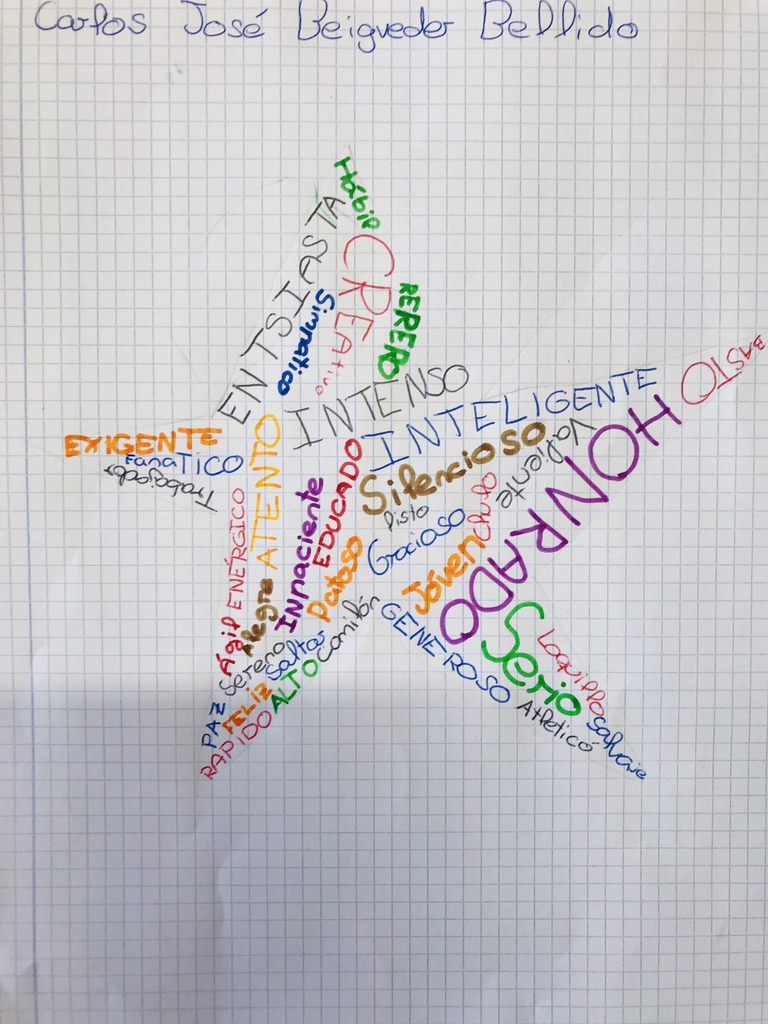 Carlos José Beigveder Bellido
Hábil
ENTSIASTA
CREAtivo
Simpatico
RERERO
INTENSO
BASTO
INTELIGENTE
EXIGENTE
FanaTICO
Trabajador
ATENTO
EDUCADO
Silencioso
Valiente
HONRADO
ENÉRGICO
Inpaciente
listo
Chulo
Gracioso
Jóven
Patoso
Ágil
Alegre
Sereno
Saltar
Comilón
GENEROSO
Serio
Loquillo
PAZ
FELIZ
ALTO
RAPIDO
Atleticó
Salvaje